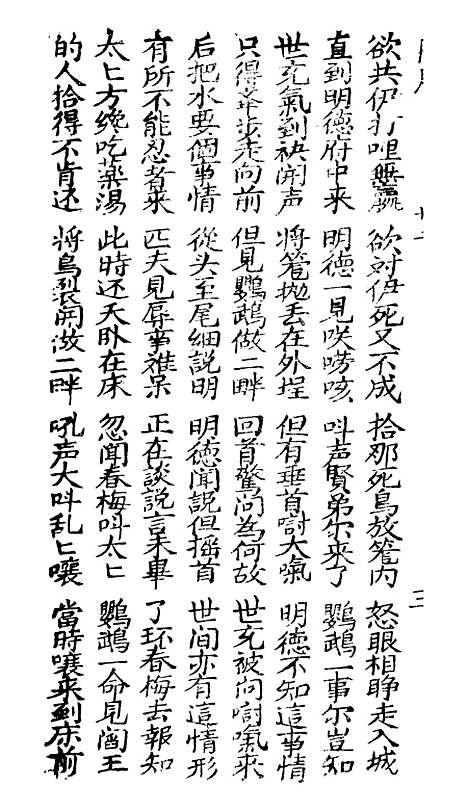 欲共伊打哩無贏 欲对伊死又不成 拾那死鳥放篭內 怒眼相睁走入城
直到明德府中来 明德一見咲嘮咳 叫声賢弟尔来了 鸚鵡一事尔豈知
世充氣到袂開声 將篭抛丢在外埕 但有垂首嘚大氣 明德不知這事情
只得举步走向前 但見鸚鵡做二畔 回首驚问為何故 世充被问嘚氣来
后把水要個事情 從头至尾細說明 明德闻說但摇首 世间亦有這情形
有所不能忍者来 匹夫見辱事难呆 正在談說言未畢 了环春梅去報知
太匕方纔吃薬湯 此時还天卧在床 忽闻春梅叫太匕 鸚鵡一命見阎王
的人拾得不肯还 將鳥裂開做二畔 吼声大叫乱匕嚷 當時嚷来到床前